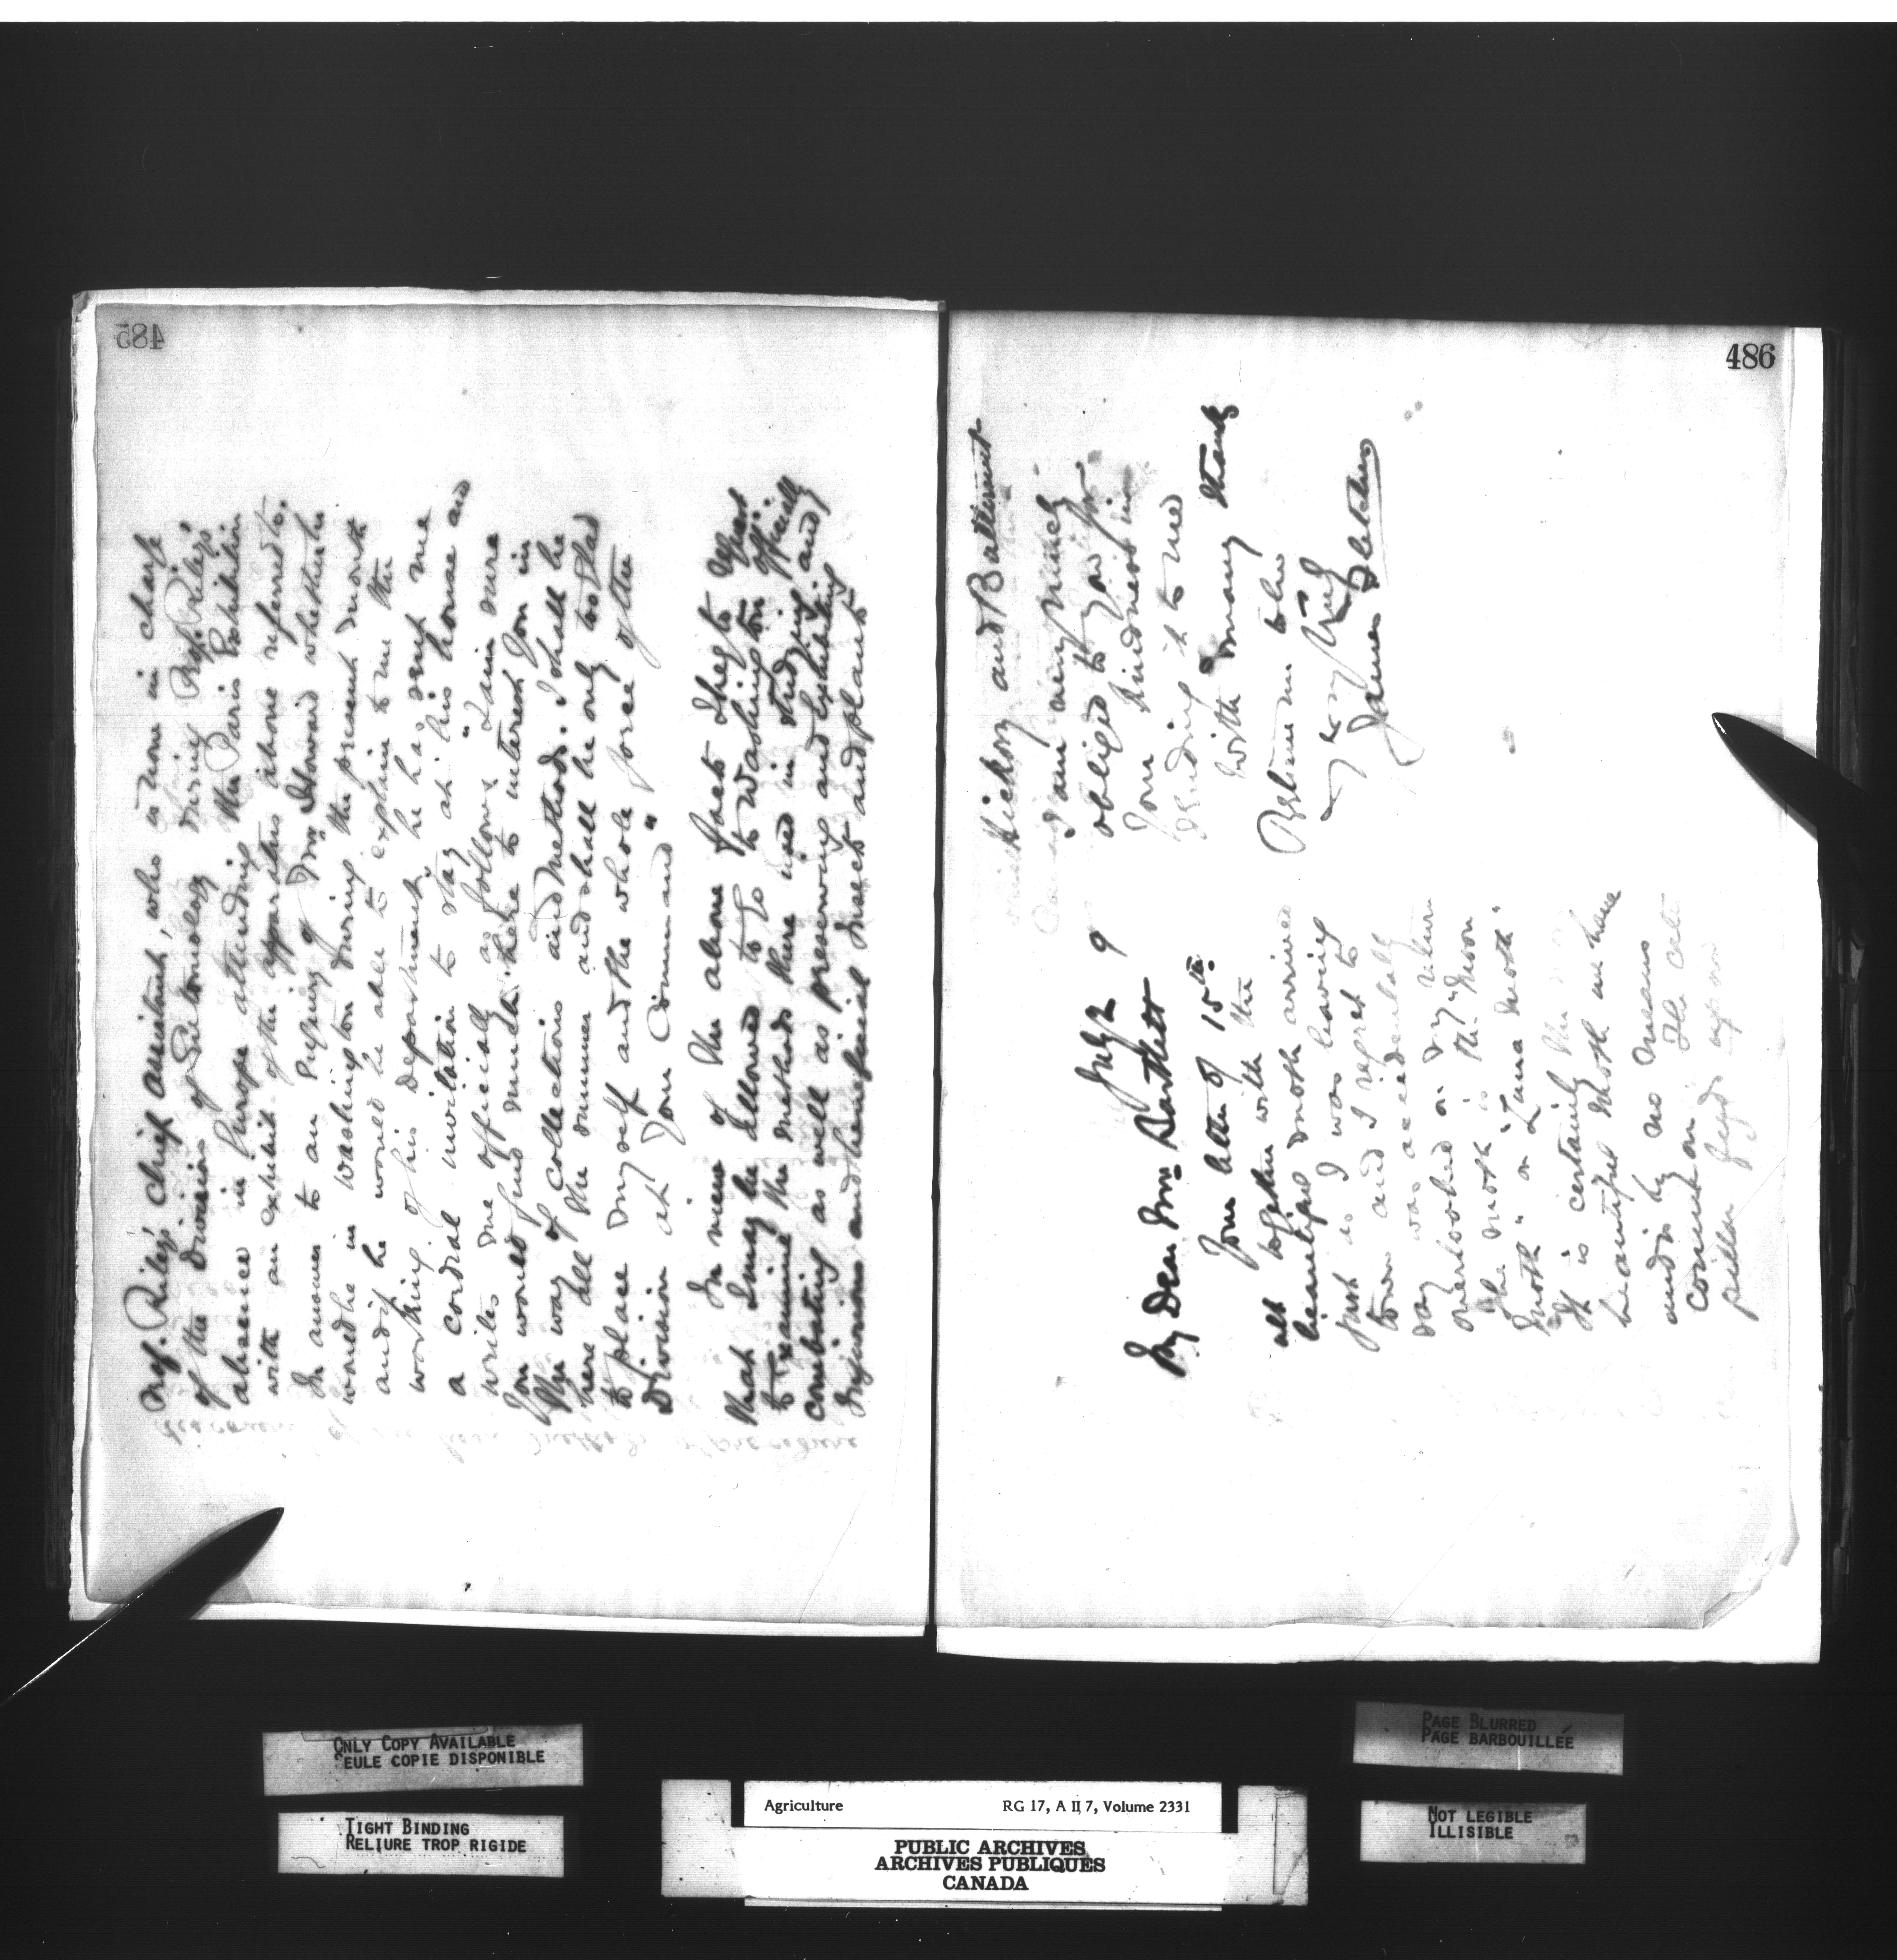 485
Prof. Riley's chief assistant, who is now in charge
of the Division of Entomology during Prof. Riley's
absence in Europe attending the Paris Exhibition
with an exhibit of the apparatus above referred to.
In answer to an enquiry of Mr Howard whether he
would be in Washington during the present month
and if he would be able to explain to me the
working of his Department, he has sent me
a cordial invitation to stay at his house and
writes me officially as follows "I am sure
you would find much here to interest you in
the way of collections and methods. I shall be
here all the summer and shall be only too glad
to place myself and the whole force of the
Division at your Command"
In view of the above facts I beg to request
that I may be allowed to go to Washington officially
to examine the methods there used in studying and
combating as well as preserving and exhibiting
injurious and beneficial insects and plants
486
July 9
My Dear Mr Bartlett
Your letter of 15th
together with the
beautiful moth arrived
just as I was leaving
town and I regret to
say was accidentally
overlooked on my return
The moth is the "Moon
Moth" or "Luna Moth"
It is certainly the
beautiful moth we have
and is by no means
common. The cater
pillar feeds upon
Hickory and Butternut
I am very much
obliged to you for
your kindness in
sending it to me
with many thanks
Believe me to be
Very Truly
James Fletcher
ONLY COPY AVAILABLE
SEULE COPIE DISPONIBLE
TIGHT BINDING
RELIURE TROP RIGIDE
Agriculture RG 17, A II 7, Volume 2331
PUBLIC ARCHIVES
ARCHIVES PUBLIQUES
CANADA
PAGE BLURRED
PAGE BARBOUILLÉE
NOT LEGIBLE
ILLISIBLE